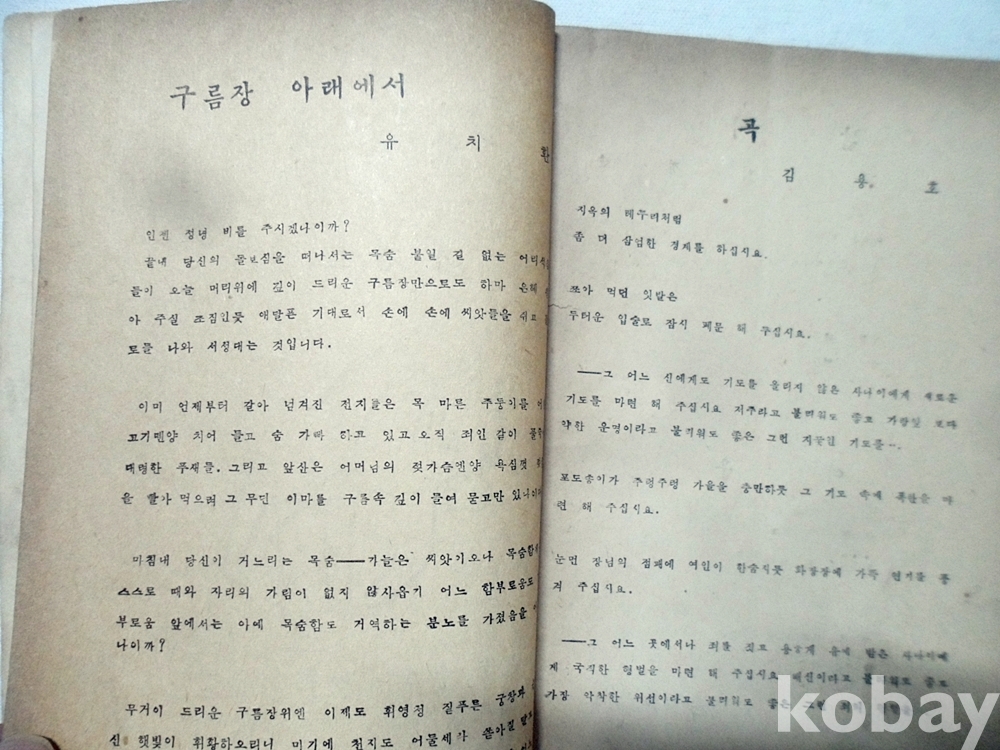 구름장 아래에서
유 치 환
인젠 정녕 비를 주시겠나이까?
끝내 당신의 돌보심을 떠나서는 목숨 붙일 길 없는 어리석
들이 오늘 머리위에 깊이 드리운 구름장만으로도 하마 은혜
아 주실 조짐인듯 애달픈 기대로서 손에 손에 씨앗들을 쥐고
로를 나와 서성대는 것입니다.
이미 언제부터 갈아 넘겨진 전지들은 목 마른 주둥이를
고기맨양 치어 들고 숨 가빠 하고 있고 오직 죄인 같이
대령한 푸새들. 그리고 앞산은 어머님의 젖가슴맨양 욕심껏
을 빨아 먹으려 그 무딘 이마를 구름속 깊이 들여 묻고만 있나이
마침내 당신이 거느리는 목숨——가늘은 씨앗기오나 목숨함에
스스로 때와 자리의 가림이 없지 않사옵기 어느 함부로움도
부로움 앞에서는 아예 목숨함도 거역하는 분노를 가졌음을
나이까?
무거이 드리운 구름장위엔 이제도 휘영청 짙푸른 궁창과
신 햇빛이 휘황하오리니 미기에 천지도 어둘세라 쏟아질
곡
김 용 호
지옥의 테두리처럼
좀 더 삼엄한 경계를 하십시요.
쪼아 먹던 잇발은
두터운 입술로 잠시 폐문 해 두십시요.
——그 어느 신에게도 기도를 올리지 않은 사나이에게 새로운
기도를 마련 해 주십시요 지주라고 불리워도 좋고 가랑잎 보다
약한 운명이라고 불리워도 좋은 그런 지꿎인 기도를…
포도송이가 주렁주렁 가을을 충만하듯 그 기도 속에 폭탄을 마
련 해 주십시요.
눈먼 장님의 점패에 여인이 한숨짓듯 화장장에 가득 연기를 풍
겨 주십시요.
——그 어느 곳에서나 죄를 짓고 사나이에
게 극직한 형벌을 마련 해 주십시요 배신이라고 불리워도 좋고
가장 악착한 위선이라고 불리워도 좋은 그런
kobay